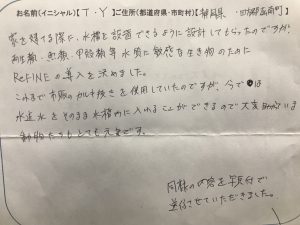 お名前(イニシャル)【T・Y】ご住所(都道府県・市町村)【静岡県・田方郡函南町】
家を建てる際に、水槽を設置できるように設計してもらったのですが、
両生類・魚類・甲殻類等水質に敏感な生き物のために
ReFINEの導入を決めました。
これまで市販のカルキ抜きを使用していたのですが、今では
水道水をそのまま水槽内に入れることができるので大変助かっています
動物たちもとても元気です。
同様の内容を写真付で
送信させていただきました。